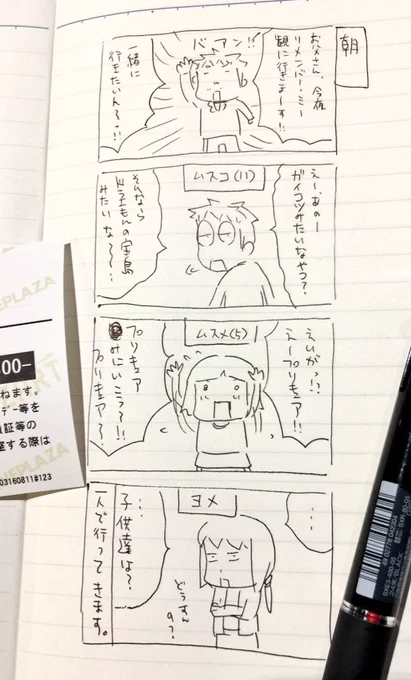 朝
お父さん、今夜
リメンバー・ミー
観に行きまーす!!
バーアン!!
一緒に
行きたい人〜!!
えー、あのー
ガイコツみたいなやつ?
ムスコ(11)
そんなら
ドラえもんの宝島
みたいな〜〜…
えいがっ!?
えープリキュア!!
ムスメ(5)
プリキュア
みにいこっ?!!
プリキュア?
…
ヨメ
どうすん
の?
…子供達は?
一人で行ってきます。
PLAZA
00-
ねます。
デー等を
証等の
座する際は
03160811#123